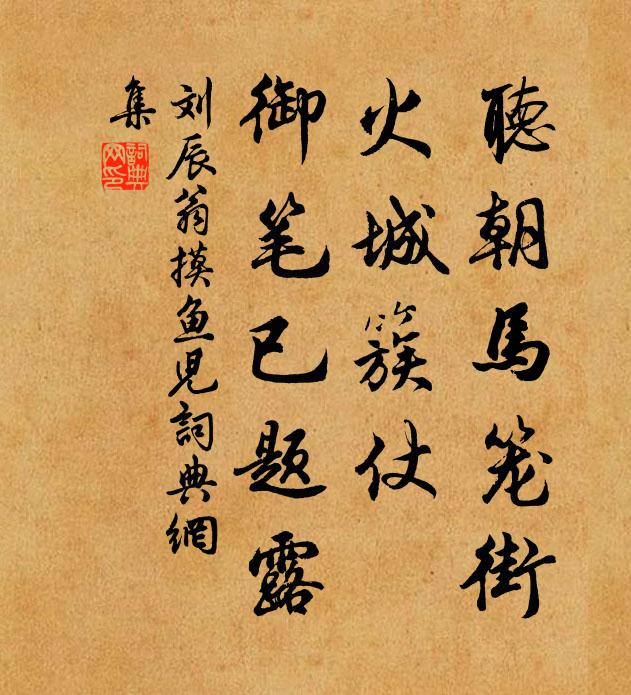 聽朝馬笼街
火城簇仗
御笔已题露
刘辰翁摸鱼児詞典網
集
詞典
网印